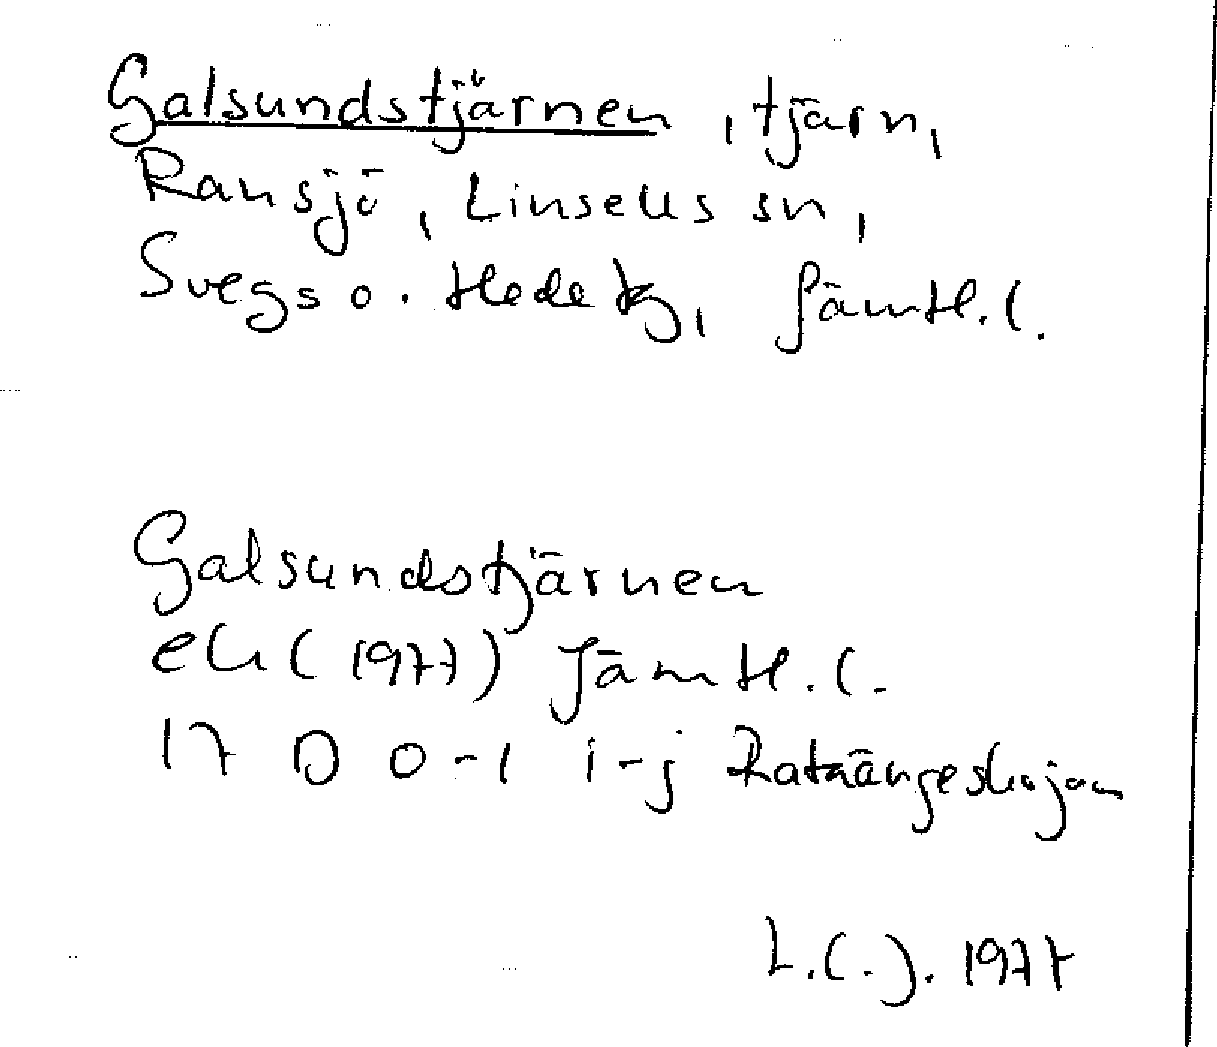 Galsundstjärnen, tjärn,
Ransjö, Linsells sn,
Svegs o. Hede tg, Jämtl. l.
Galsundstjärnen
ek (1977) Jämtl. l.
17 D 0-1 i-j Rataängeskojan
L.(.). 1977